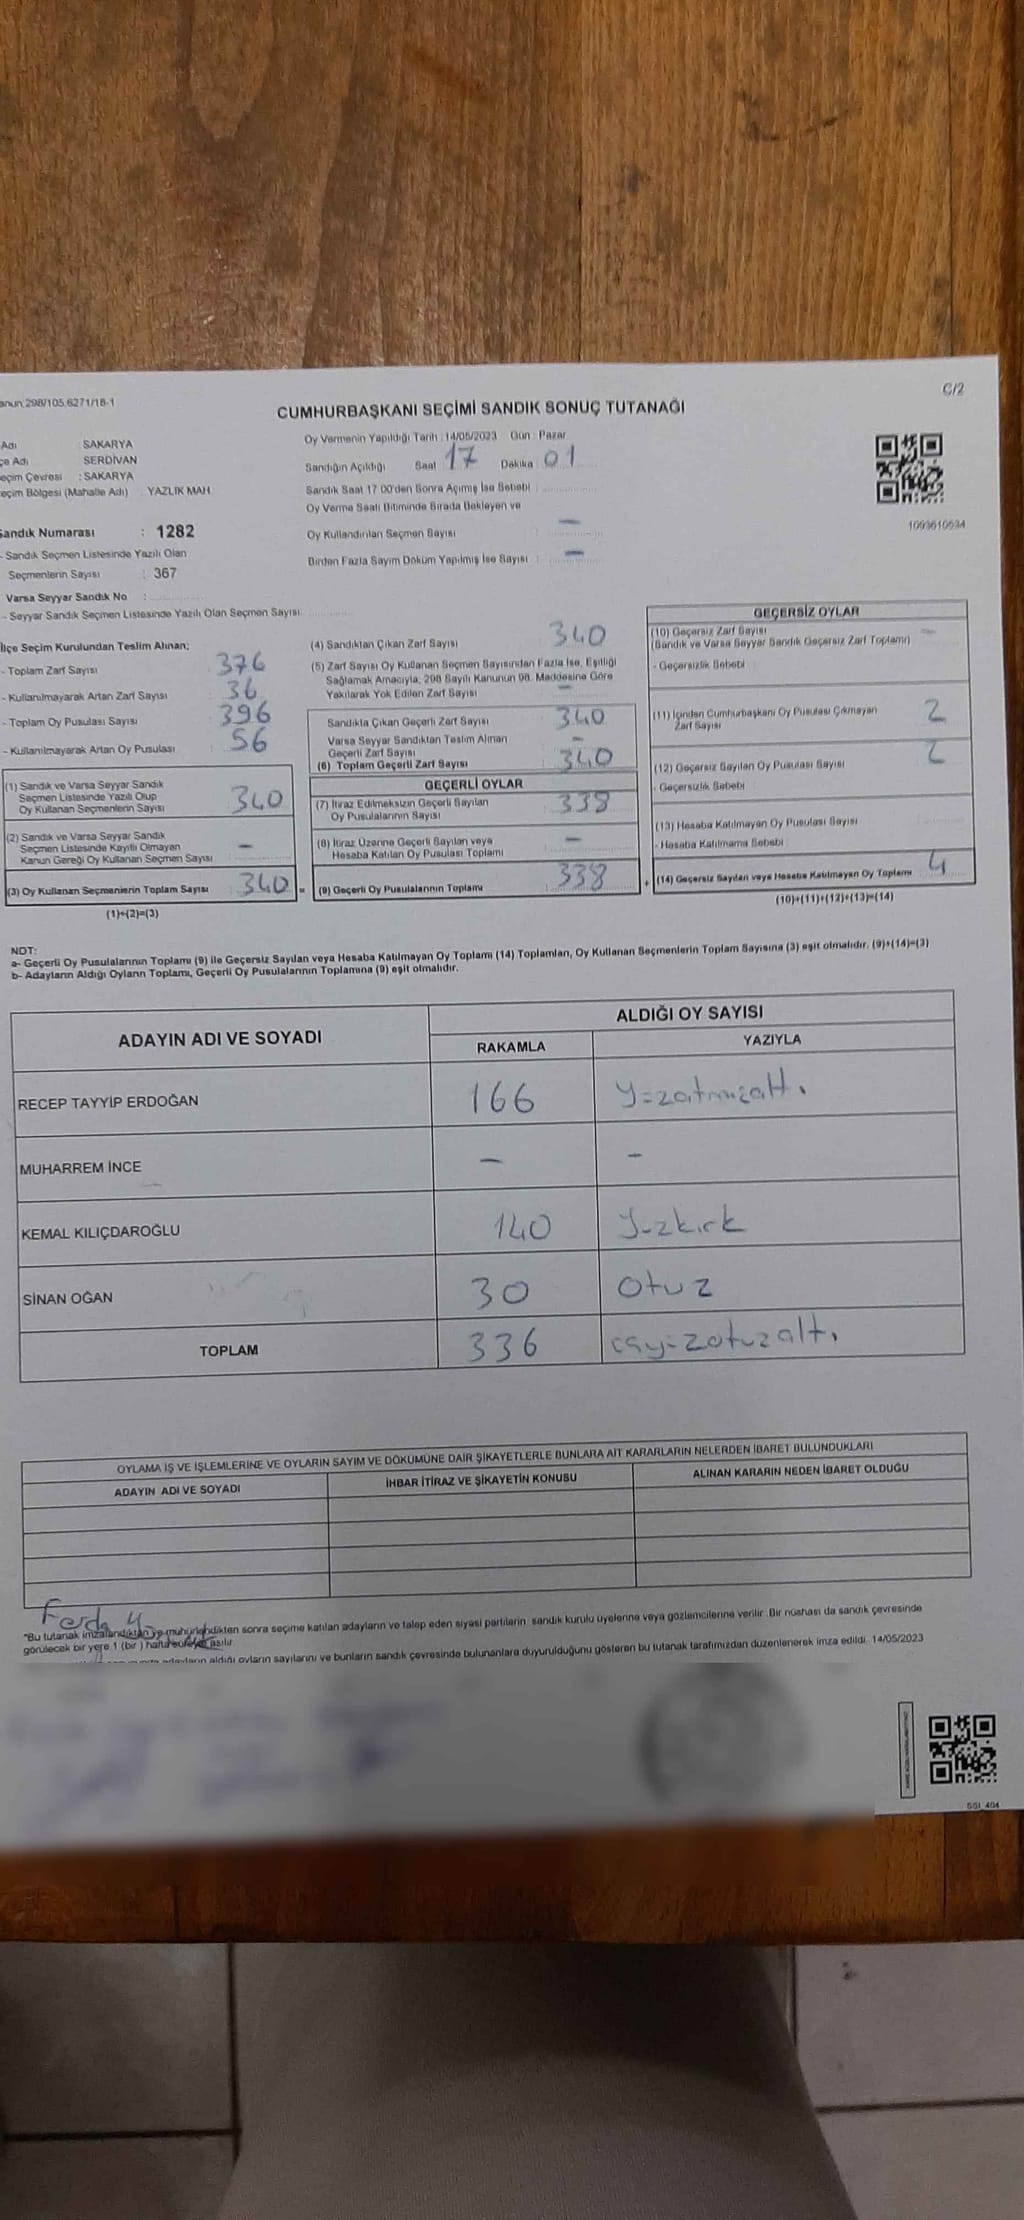 anun 298/105.6271/18-1
C/2
CUMHURBAŞKANI SEÇİMİ SANDIK SONUÇ TUTANAĞI
Adı SAKARYA
çe Adı SERDİVAN
eçim Çevresi : SAKARYA
eçim Bölgesi (Mahalle Adı) YAZLIK MAH
Sandık Numarası : 1282
- Sandık Seçmen Listesinde Yazılı Olan
Seçmenlerin Sayısı : 367
Varsa Seyyar Sandık No :
- Seyyar Sandık Seçmen Listesinde Yazılı Olan Seçmen Sayısı:
Oy Vermenin Yapıldığı Tarih : 14/05/2023 Gün : Pazar
Sandığın Açıldığı Saat 17 Dakika 01
Sandık Saat 17 00'den Sonra Açımış İse Sebebi :
Oy Verme Saati Bitiminde Sırada Bekleyen ve
Oy Kullandırılan Seçmen Sayısı : -
Birden Fazla Sayım Döküm Yapılmış İse Sayısı : -
1093610534
İlçe Seçim Kurulundan Teslim Alınan;
- Toplam Zarf Sayısı : 376
- Kullanılmayarak Artan Zarf Sayısı : 36
- Toplam Oy Pusulası Sayısı : 396
- Kullanılmayarak Artan Oy Pusulası : 56
(1) Sandık ve Varsa Seyyar Sandık
Seçmen Listesinde Yazılı Olup
Oy Kullanan Seçmenlerin Sayısı : 340
(2) Sandık ve Varsa Seyyar Sandık
Seçmen Listesinde Kayıtlı Olmayan
Kanun Gereği Oy Kullanan Seçmen Sayısı : -
(3) Oy Kullanan Seçmenlerin Toplam Sayısı : 340 =
(1)+(2)=(3)
(4) Sandıktan Çıkan Zarf Sayısı : 340
(5) Zarf Sayısı Oy Kullanan Seçmen Sayısından Fazla İse, Eşitliği
Sağlamak Amacıyla, 298 Sayılı Kanunun 98. Maddesine Göre
Yakılarak Yok Edilen Zarf Sayısı : -
Sandıkta Çıkan Geçerli Zarf Sayısı : 340
Varsa Seyyar Sandıktan Teslim Alınan
Geçerli Zarf Sayısı : -
(6) Toplam Geçerli Zarf Sayısı : 340
GEÇERLİ OYLAR
(7) İtiraz Edilmeksizin Geçerli Sayılan
Oy Pusulalarının Sayısı : 338
(8) İtiraz Üzerine Geçerli Sayılan veya
Hesaba Katılan Oy Pusulası Toplamı : -
(9) Geçerli Oy Pusulalarının Toplamı : 338 +
GEÇERSİZ OYLAR
(10) Geçersiz Zarf Sayısı
(Sandık ve Varsa Seyyar Sandık Geçersiz Zarf Toplamı) -
- Geçersizlik Sebebi
(11) İçinden Cumhurbaşkanı Oy Pusulası Çıkmayan
Zarf Sayısı 2
(12) Geçersiz Sayılan Oy Pusulası Sayısı 2
- Geçersizlik Sebebi
(13) Hesaba Katılmayan Oy Pusulası Sayısı
- Hesaba Katılmama Sebebi
(14) Geçersiz Sayılan veya Hesaba Katılmayan Oy Toplamı 4
(10)+(11)+(12)+(13)=(14)
NOT:
a- Geçerli Oy Pusulalarının Toplamı (9) ile Geçersiz Sayılan veya Hesaba Katılmayan Oy Toplamı (14) Toplamları, Oy Kullanan Seçmenlerin Toplam Sayısına (3) eşit olmalıdır. (9)+(14)=(3)
b- Adayların Aldığı Oyların Toplamı, Geçerli Oy Pusulalarının Toplamına (9) eşit olmalıdır.
ADAYIN ADI VE SOYADI ALDIĞI OY SAYISI
RAKAMLA YAZIYLA
RECEP TAYYİP ERDOĞAN 166 yüzatmışaltı
MUHARREM İNCE - -
KEMAL KILIÇDAROĞLU 140 yüzkırk
SİNAN OĞAN 30 otuz
TOPLAM 336 üçyüzotuzaltı
OYLAMA İŞ VE İŞLEMLERİNE VE OYLARIN SAYIM VE DÖKÜMÜNE DAİR ŞİKAYETLERLE BUNLARA AİT KARARLARIN NELERDEN İBARET BULUNDUKLARI
ADAYIN ADI VE SOYADI İHBAR İTİRAZ VE ŞİKAYETİN KONUSU ALINAN KARARIN NEDEN İBARET OLDUĞU
Ferda
"Bu tutanak imzalandıktan ve mühürlendikten sonra seçime katılan adayların ve talep eden siyasi partilerin sandık kurulu üyelerine veya gözlemcilerine verilir. Bir nüshası da sandık çevresinde
görülecek bir yere 1 (bir) hafta süreyle asılır
adayların aldığı oyların sayılarını ve bunların sandık çevresinde bulunanlara duyurulduğunu gösteren bu tutanak tarafımızdan düzenlenerek imza edildi. 14/05/2023